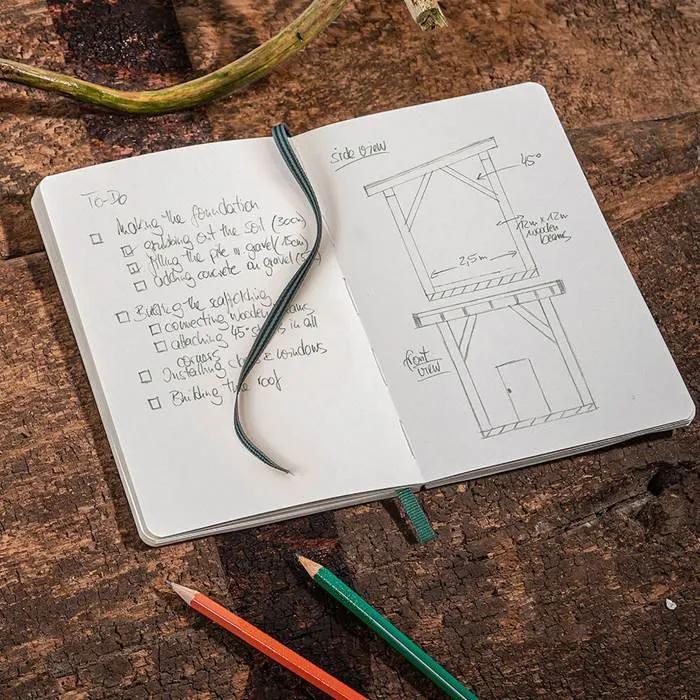 To-Do
Making the foundation
grubbing out the soil (30cm)
filling the pile w gravel (15cm)
adding concrete on gravel (5
Building the scaffolding
connecting wooden beams
attaching 45° in all
corners
Installing & windows
Building the roof
side view
45°
12cm x 12cm
wooden
beams
2,5m
front
view